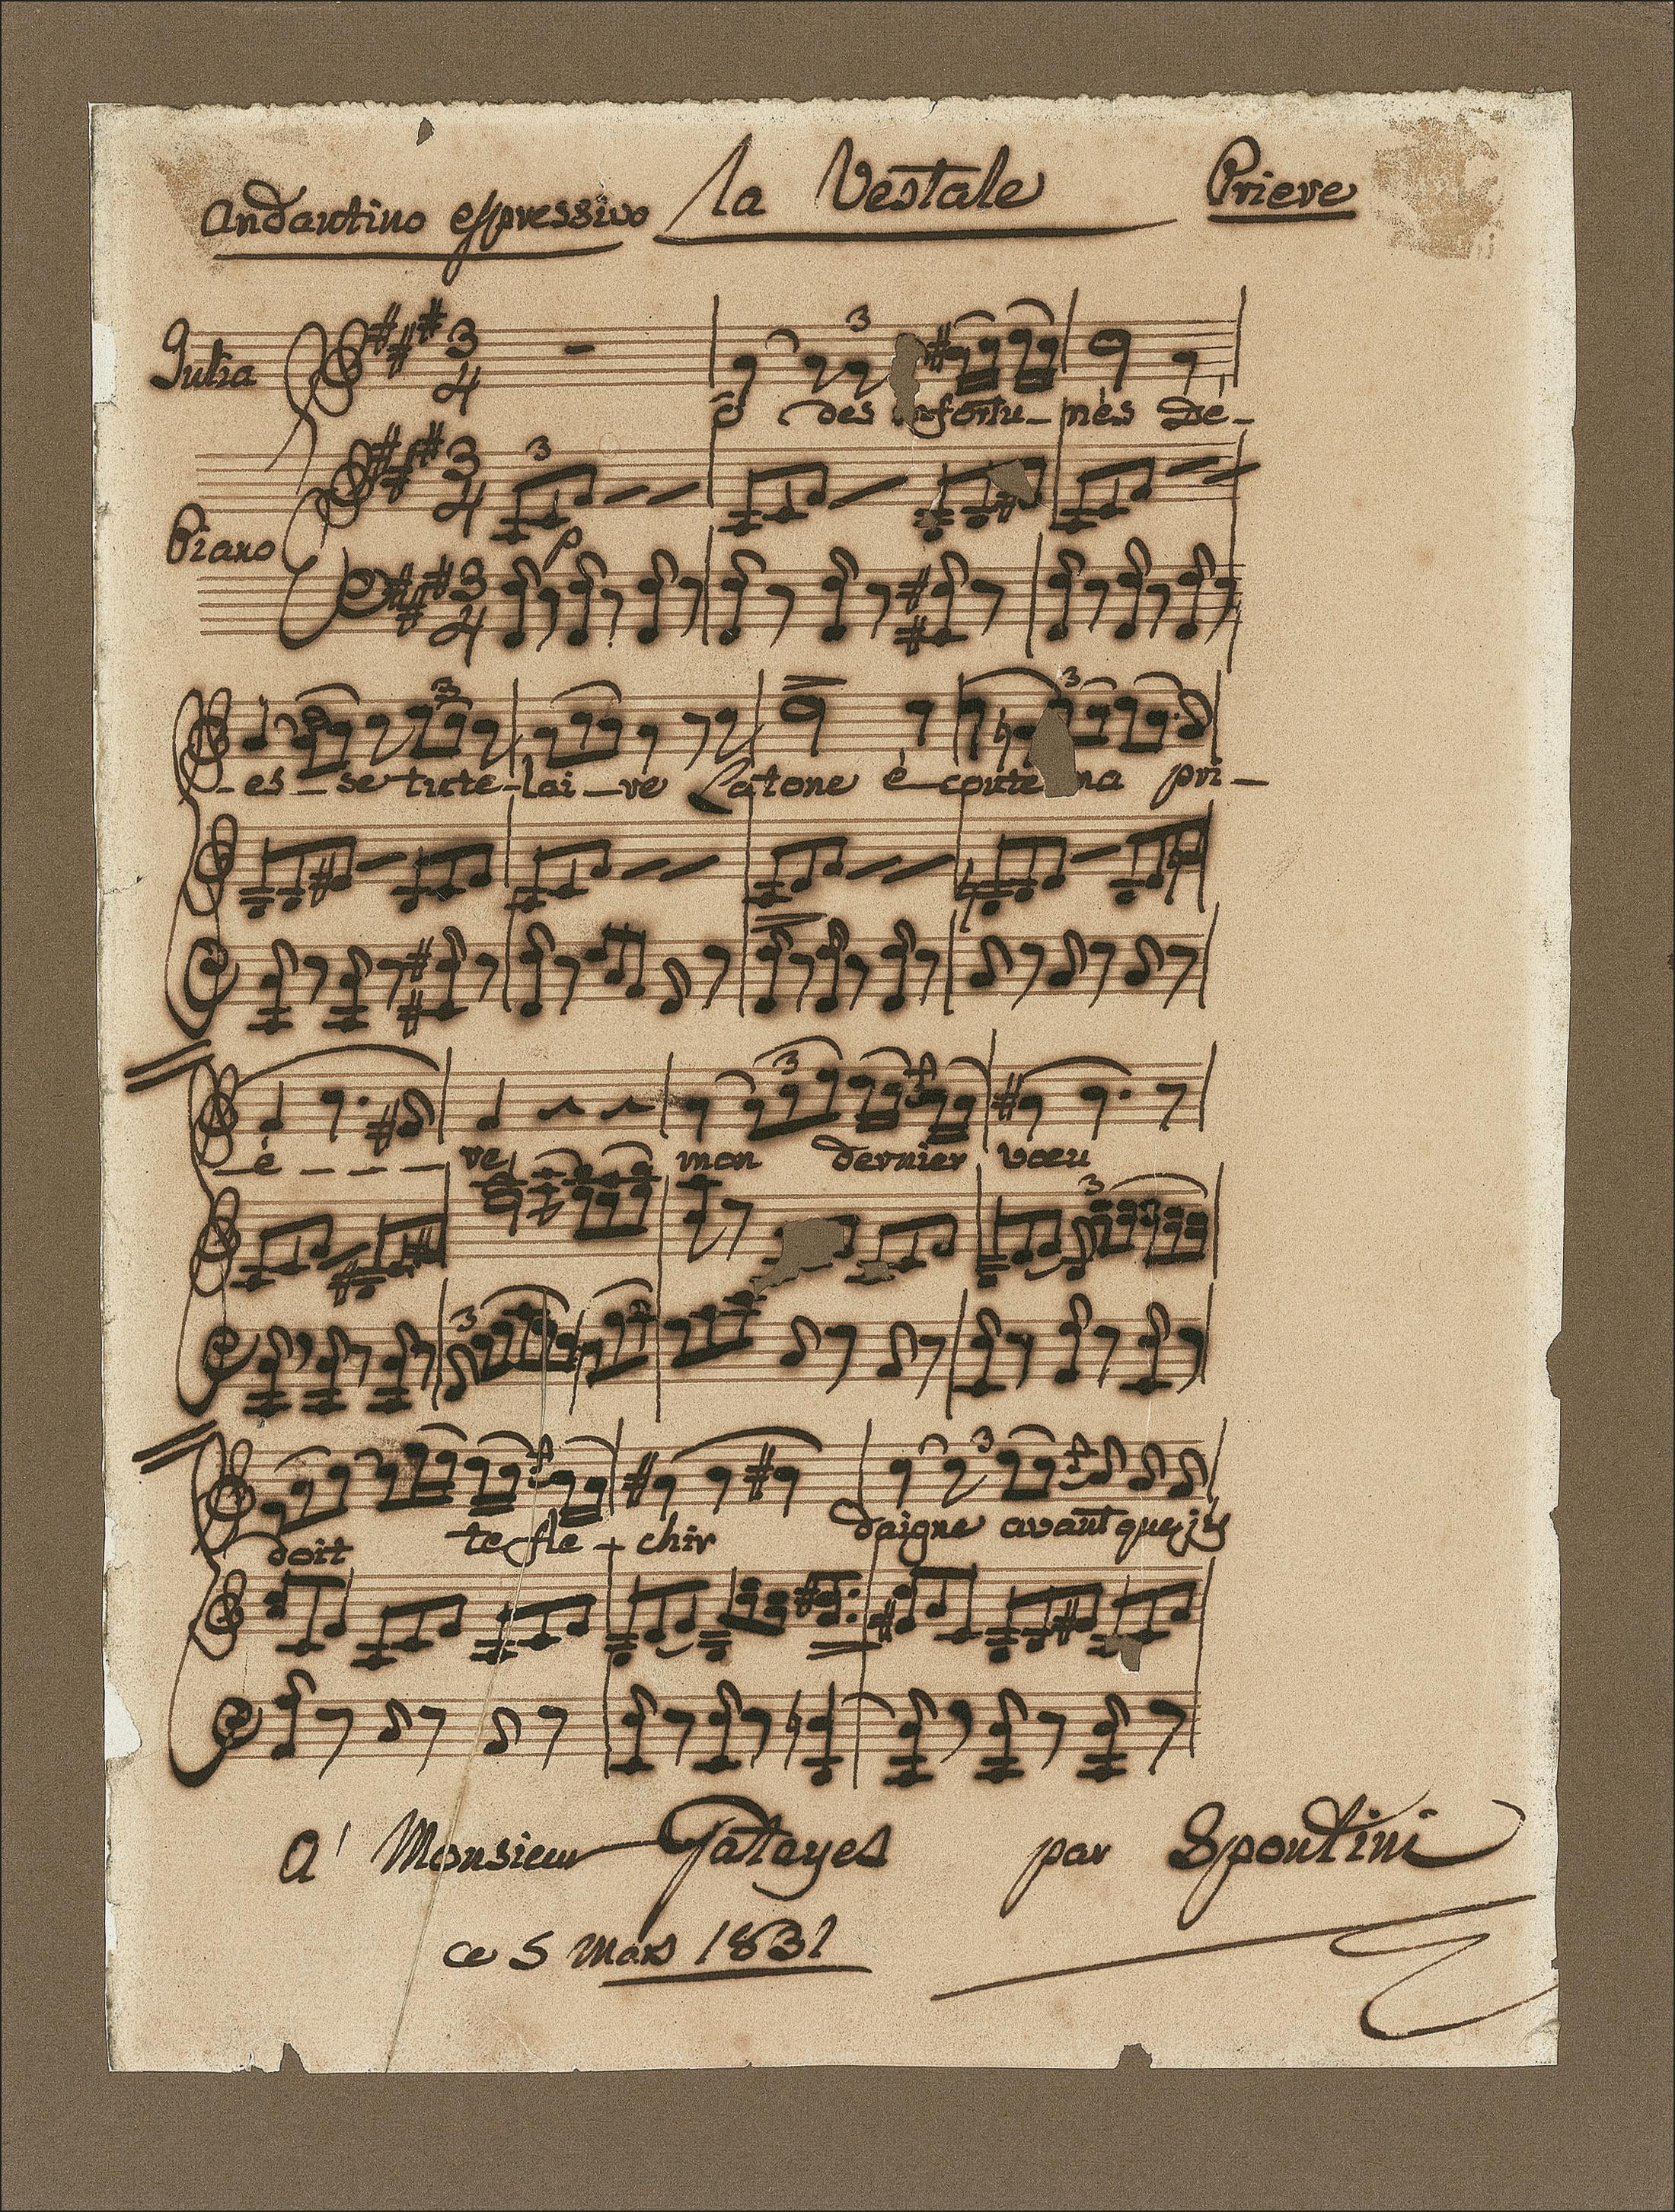 Andantino espressivo la Vestale Priere
Julia
3 4
3
ô des infortu_nés Dé_
3 4
3
Piano
p
3 4
3
3
_es_se tute_lai_re Latone é_coute ma pri_
3
_è____re mon dernier vœu
3
3
3
doit te flé_chir daigne avant que j'y
A' Monsieur Gatayes par Spontini
ce 5 Mars 1831